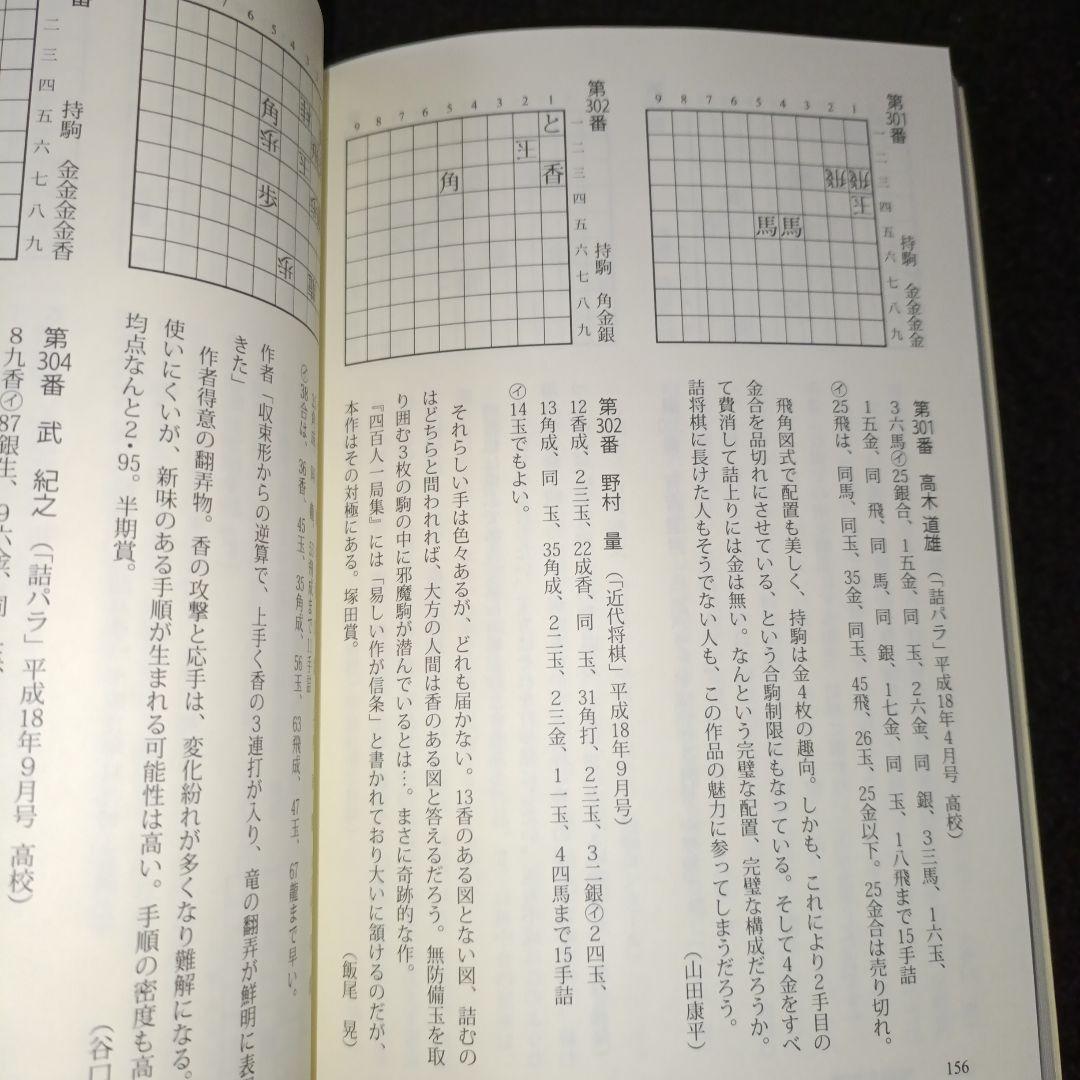 第301番
9 8 7 6 5 4 3 2 1
一二三四五六七八九
飛飛
玉
馬馬
持駒 金金金金
第301番 高木道雄 (「詰パラ」平成18年4月号 高校)
3六馬㋑25銀合、1五金、同 玉、2六金、同 銀、3三馬、1六玉、
1五金、同 飛、同 馬、同 銀、1七金、同 玉、1八飛まで15手詰
㋑25飛は、同馬、同玉、35金、同玉、45飛、26玉、25金以下。25金合は売り切れ。
飛角図式で配置も美しく、持駒は金4枚の趣向。しかも、これにより2手目の
金合を品切れにさせている、という合駒制限にもなっている。そして4金をすべ
て費消して詰上りには金は無い。なんという完璧な配置、完璧な構成だろうか。
詰将棋に長けた人もそうでない人も、この作品の魅力に参ってしまうだろう。
(山田康平)
第302番
9 8 7 6 5 4 3 2 1
一二三四五六七八九
と
玉
角 香
持駒 角金銀
第302番 野村 量 (「近代将棋」平成18年9月号)
12香成、2三玉、22成香、同 玉、31角打、2三玉、3二銀㋑2四玉、
13角成、同 玉、35角成、2二玉、2三金、1一玉、4四馬まで15手詰
㋑14玉でもよい。
それらしい手は色々あるが、どれも届かない。13香のある図とない図、詰むの
はどちらと問われれば、大方の人間は香のある図と答えるだろう。無防備玉を取
り囲む3枚の駒の中に邪魔駒が潜んでいるとは…。まさに奇跡的な作。
『四百人一局集』には「易しい作が信条」と書かれており大いに頷けるのだが、
本作はその対極にある。塚田賞。
(飯尾 晃)
156
7 6 5 4
角
歩
歩
歩
㋑38合は、36香、45玉、35角成、56玉、63飛成、47玉、67龍まで早い。
作者「収束形からの逆算で、上手く香の3連打が入り、竜の翻弄が鮮明に表
きた」
作者得意の翻弄物。香の攻撃と応手は、変化紛れが多くなり難解になる。
使いにくいが、新味のある手順が生まれる可能性は高い。手順の密度も高
均点なんと2・95。半期賞。
(谷口
番
二三四五六七八九
持駒 金金金金香
第304番 武 紀之 (「詰パラ」平成18年9月号 高校)
8九香㋑87銀生、9六金、同